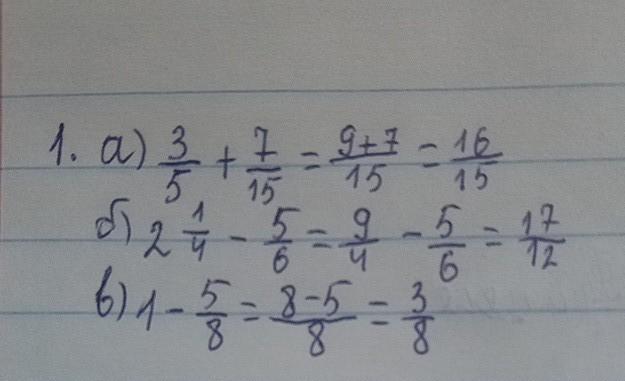 1. а) 3/5 + 7/15 = 9+7/15 = 16/15
б) 2 1/4 - 5/6 = 9/4 - 5/6 = 17/12
в) 1 - 5/8 = 8-5/8 = 3/8